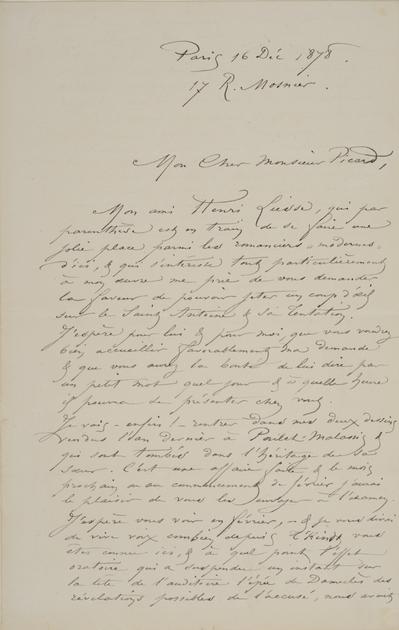 Paris 16 Déc 1878.
17 R. Mosnier.
Mon Cher Monsieur Picard,
Mon ami Henri Liesse, qui par
parenthèse est en train de se faire une
jolie place parmi les romanciers "modernes"
d'ici, & qui s'intéresse tout particulièrement
à mon œuvre me prie de vous demander
la faveur de pouvoir jeter un coup d'œil
sur le Saint Antoine & Sa Tentation.
J'espère pour lui & pour moi que vous voudrez
bien accueillir favorablement ma demande
& que vous aurez la bonté de lui dire par
un petit mot quel jour & à quelle heure
il pourra se présenter chez vous.
Je vais - enfin! - rentrer dans mes deux dessins
vendus l'an dernier à Poulet-Malassis &
qui sont tombés dans l'héritage de sa
sœur. C'est une affaire faite & le mois
prochain ou au commencement de février j'aurai
le plaisir de vous les à l'examen.
J'espère vous voir en février, - & je vous dirai
de vive voix combien depuis vous
êtes connu ici, & à quel point l'effet
oratoire qui a suspendu un instant sur
la tête de l'auditoire l'épée de Damoclès des
révélations possibles de l'accusé, nous avait